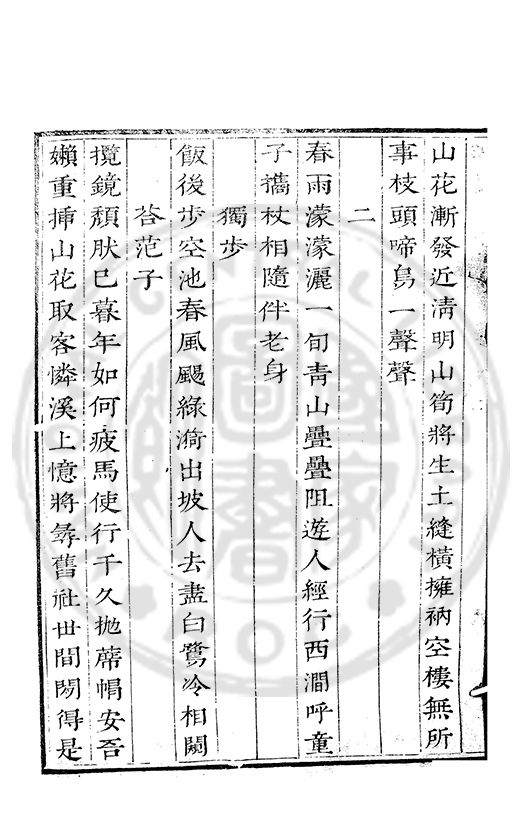 山花漸發近淸明山筍將生土縫橫擁衲空樓無所
事枝頭啼鳥一聲聲
二
春雨濛濛灑一旬靑山疊疊阻遊人經行西澗呼童
子攜杖相隨伴老身
獨步
飯後步空池春風颺綠漪出坡人去盡白鷺冷相闚
答范子
攬鏡頹肰已暮年如何疲馬使行千久抛蓆帽安吾
嬾重揷山花取客憐溪上憶將尋舊社世間閑得是